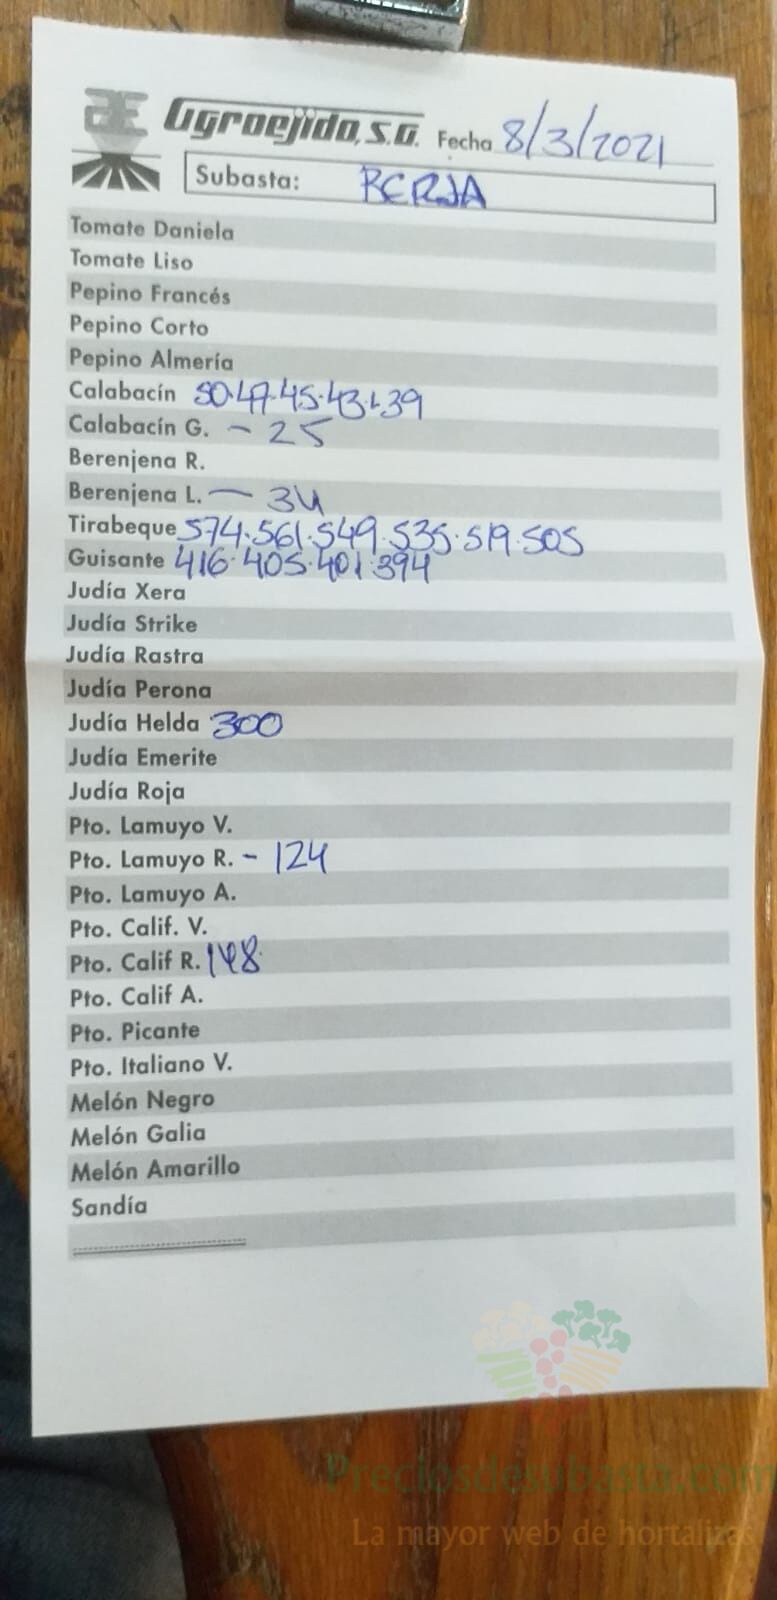 Agroejido, S.A. Fecha 8/3/2021
Subasta: BERJA
Tomate Daniela
Tomate Liso
Pepino Francés
Pepino Corto
Pepino Almería
Calabacín 50.47.45.43.39
Calabacín G. - 25
Berenjena R.
Berenjena L. - 34
Tirabeque 574.561.549.535.519.505
Guisante 416.405.401.394
Judía Xera
Judía Strike
Judía Rastra
Judía Perona
Judía Helda 300
Judía Emerite
Judía Roja
Pto. Lamuyo V.
Pto. Lamuyo R. - 124
Pto. Lamuyo A.
Pto. Calif. V.
Pto. Calif R. 148
Pto. Calif A.
Pto. Picante
Pto. Italiano V.
Melón Negro
Melón Galia
Melón Amarillo
Sandía
Preciosdesubasta.com
La mayor web de hortalizas